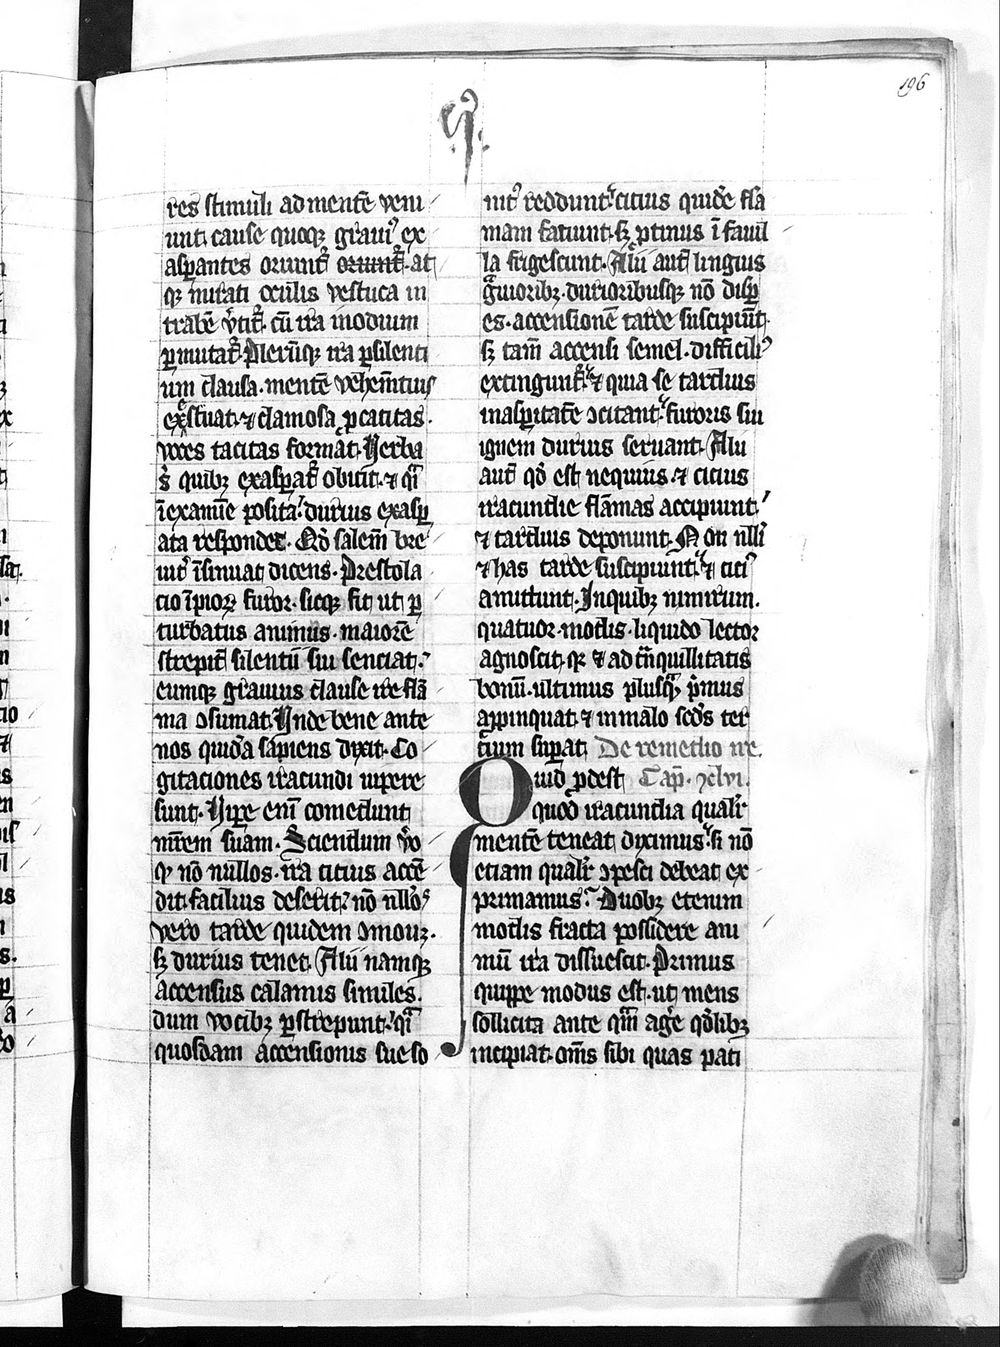 196
res stimuli ad mentē veni
unt. cause quoqꝫ graui᷒ ex
asꝑantes oriunt᷑ oriunt᷑. at
qꝫ mutati oculis vestuca in
trabē v̾tit᷑. cū ira modium
ꝑmutat᷑. Plerūqꝫ ira ꝑ silenti
um clausa. mentē vehemēcius
exestuat. ⁊ clamosa ꝑ cacitas.
voces tacitas format. Verba
s͛ quibꝫ exasꝑat᷑ obicit. ⁊ q̄ī
ī examīe posita. durius exasꝑ
ata respondet. Qd̄ salem̄ bre
uit᷑ īsinuat dicens. Prestola
cio īpioꝝ furor. sicqꝫ fit ut ꝑ
turbatus animus. maiorē
strepit̄ silentii sui senciat.
eumqꝫ grauius clause ire flā
ma ꝯsumat. Unde bene ante
nos quidā sapiens dixit. Co
gitaciones iracundi uipere
sunt. Viꝑe eni᷒ comedunt
mr̄em suam. Sciendum v͛o
ꝙ nō nullos. ira citius accē
dit. facilius deserit. nō nll̄os
vero tarde quidem ꝯmouꝫ.
sꝫ durius tenet. Alii namqꝫ
accensus calamis similes.
dum vocibꝫ ꝑstrepunt. q̄ī
quosdam accensionis sue so
nit᷒ reddunt. citius quidē fla
mam faciunt. sꝫ ꝓtinus ī fauil
la frigescunt. Alii aut̄ lingnis
g̾uioribꝫ. durioribusqꝫ nō disꝑ
es. accensionē tarde suscipiūt.
sꝫ tam̄ accensi semel. difficili᷒
extingunt᷑. ⁊ quia se tardius
in asꝑitatē ꝯcitant. furoris sui
ignem durius seruant. Alii
aut̄ qd̄ est nequius. ⁊ citius
iracundie flāmas accipiunt.
⁊ tardius deponunt. Non nll̄i
⁊ has tarde suscipiunt. ⁊ citi᷒
amittunt. In quibꝫ nimirum.
quatuor. modis. liquido lector
agnoscit. qꝫ ⁊ ad tn̄quillitatis
bonū. ultimus plusqꝫ p̄mus
aꝓpinquat. ⁊ in malo sed̄s ter
cium suꝑat. De remedio ire.
Quid ꝓdest Cap̄. xclvi.
quod iracundia qualit᷑
mentē teneat diximus. si nō
etiam qualit᷑ ꝯpesci debeat ex
primamus. Duobꝫ etenim
modis fracta possidere ani
mū ira dissuescit. Primus
quippe modus est. ut mens
sollicita ante qm̄ age͛ qd̄libꝫ
incipiat. om̄s sibi quas pati